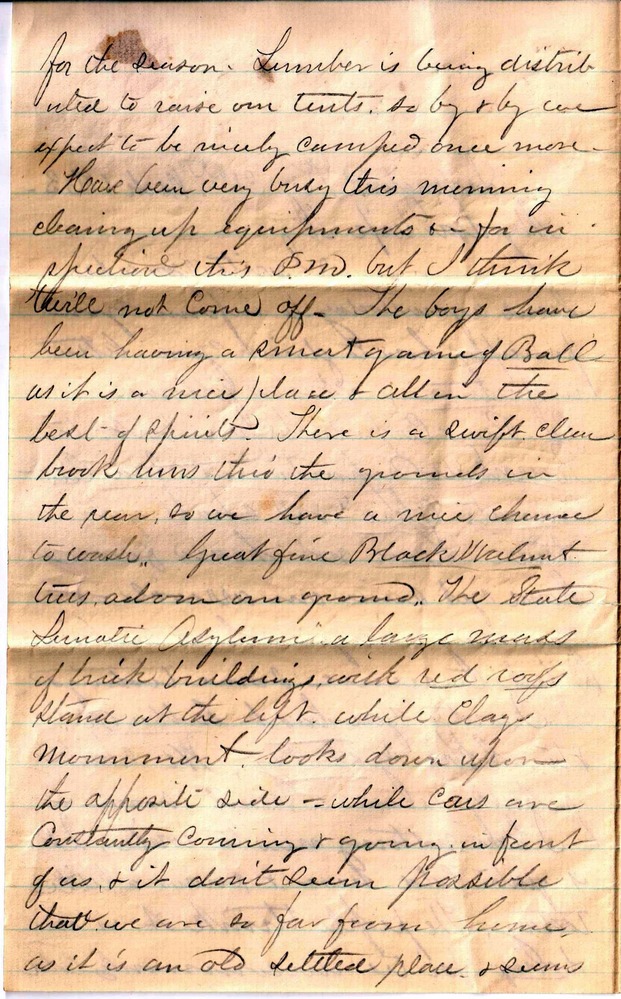 for the season. Lumber is being distrib
uted to raise our tents. so by & by we
expect to be nicely camped once more.
Have been very busy this morning
cleaning up equipments &c for in
spection this P.M. but I think
twill not come off. The boys have
been having a smart game of Ball
as it is a nice place & all in the
best of spirits. There is a swift clear
brook runs thro the grounds in
the rear, so we have a nice chance
to wash. Great fine Black Walnut
trees, adorn our ground. The State
Lunatic Asylum a large mass
of brick buildings with red roofs
stand at the left. while Clays
Monument looks down upon
the opposite side – while cars are
Constantly coming & going in front
of us, & it don't seem possible
that we are so far from home,
as it is an old settled place. & seems